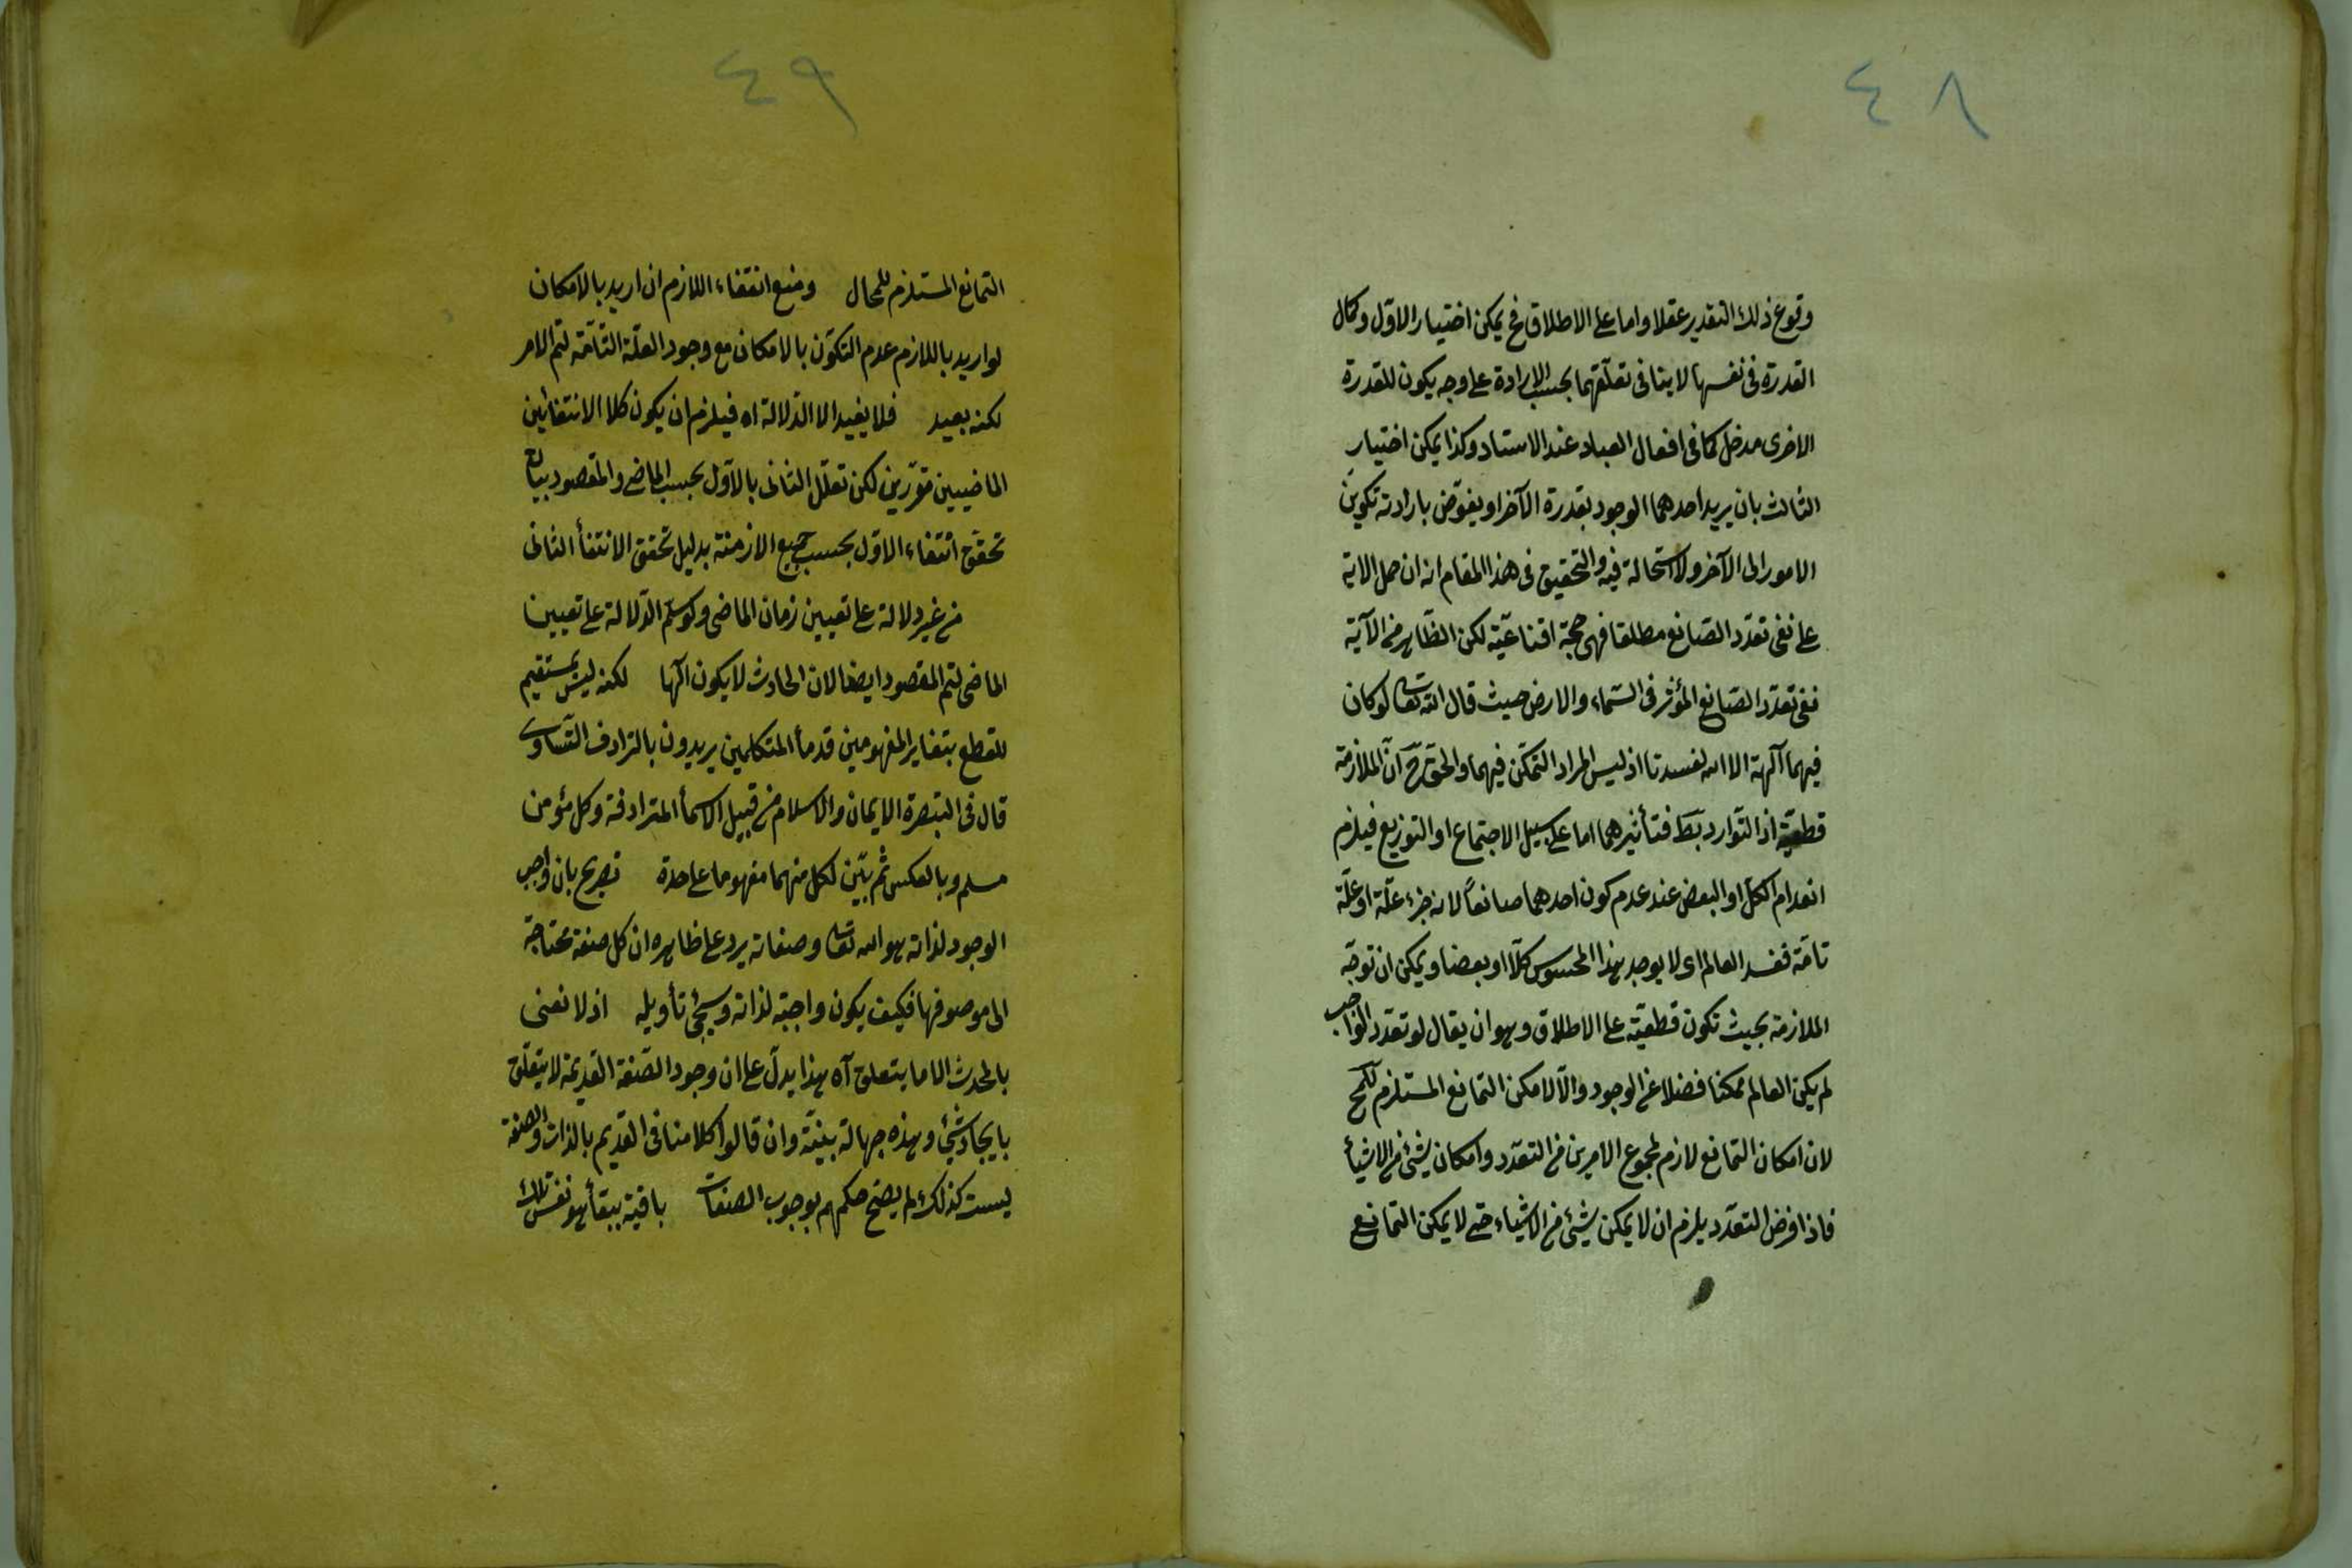 ٤٨
وقوع ذلك التقدير عقلا واما على الاطلاق فح يمكن اختيار الاول وكمال
القدرة فى نفسها لا ينافى تعلقهما بحسب الارادة على وجه يكون للقدرة
الاخرى مدخل كما فى افعال العباد عند الاستاد وكذا يمكن اختيار
الثالث بان يريد احدهما الوجود بقدرة الآخر او يفوّض بارادته تكوين
الامور الى الآخر ولا استحالة فيه والتحقيق فى هذا المقام انه ان حمل الاية
على نفى تعدّد الصّانع مطلقا فهى حجة اقناعيّة لكن الظّاهر من الآية
نفى تعدّد الصّانع المؤثر فى السّماء والارض حيث قال الله تعالى لو كان
فيهما آلهة الا الله لفسدتا اذ ليس المراد التمكّن فيهما والحق ح انّ الملازمة
قطعيّة اذ التوارد بط فتأثيرهما اما على سبيل الاجتماع او التوزيع فيلزم
انعدام الكل او البعض عند عدم كون احدهما صانعاً لانه جزء علّة او علّة
تامّة ففسد العالم اى لا يوجد هذا المحسوس كلّا او بعضا ويمكن ان توجّه
الملازمة بحيث تكون قطعيّة على الاطلاق وهو ان يقال لو تعدد الواجب
لم يكن العالم ممكنا فضلا عن الوجود والّا لامكن التمانع المستلزم للمح
لان امكان التمانع لازم لمجموع الامرين من التعدّد وامكان شئ من الاشيأ
فاذا فرض التعدّد يلزم ان لا يمكن شئ من الاشياء حتى لا يمكن التمانع
٤٩
التمانع المستلزم للمحال ومنع انتفاء اللازم ان اريد بالامكان
لو اريد باللازم عدم التكوّن بالامكان مع وجود العلّة التامّة لتم الامر
لكنه بعيد فلا يفيد الا الدّلالة اه فيلزم ان يكون كلا الانتفائين
الماضيين مقرّرين لكن تعلّل الثانى بالاول بحسب الماضى والمقصود بيان
تحقق انتفاء الاوّل بحسب جميع الازمنة بدليل تحقق الانتفأ الثانى
من غير دلالة على تعيين زمان الماضى ولو سلّم الدّلالة على تعيين
الماضى لتم المقصود ايضا لان الحادث لا يكون آلها لكنه ليس بمستقيم
للقطع بتغاير المفهومين قدمأ المتكلمين يريدون بالترادف التساوى
قال فى التبصرة الايمان والاسلام من قبيل الاسمأ المترادفة وكل مؤمن
مسلم وبالعكس ثم بيّن لكل منهما مفهوما على حدة تصريح بان واجب
الوجود لذاته هو الله تعالى وصفاته يرد على ظاهره ان كل صفة محتاجة
الى موصوفها فكيف يكون واجبة لذاته وسيجئ تأويله اذ لا نعنى
بالمحدث الا ما يتعلق آه هذا يدلّ على ان وجود الصّفة القديمة لا يتعلّق
بايجاد شئ وهذه جهالة بيّنة وان قالوا كلامنا فى القديم بالذات والصفة
ليست كذلك لم يصح حكمهم بوجوب الصفات باقية ببقأ هو نفس تلك